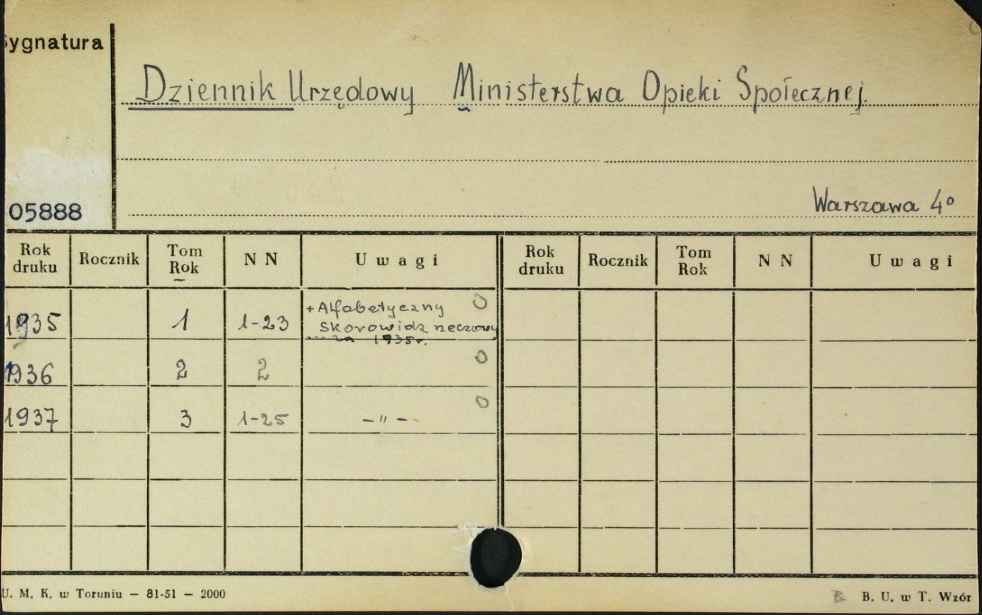 Sygnatura
Dziennik Urzędowy Ministerstwa Opieki Społecznej
05888
Warszawa 4°
Rok druku Rocznik Tom Rok N N U w a g i Rok druku Rocznik Tom Rok N N U w a g i
1935 1 1-23 + Alfabetyczny
Skorowidz rzeczowy
za 1935r.
1936 2 2
1937 3 1-25 -"-
U. M. K. w Toruniu — 81-51 — 2000
B. U. w T. Wzór